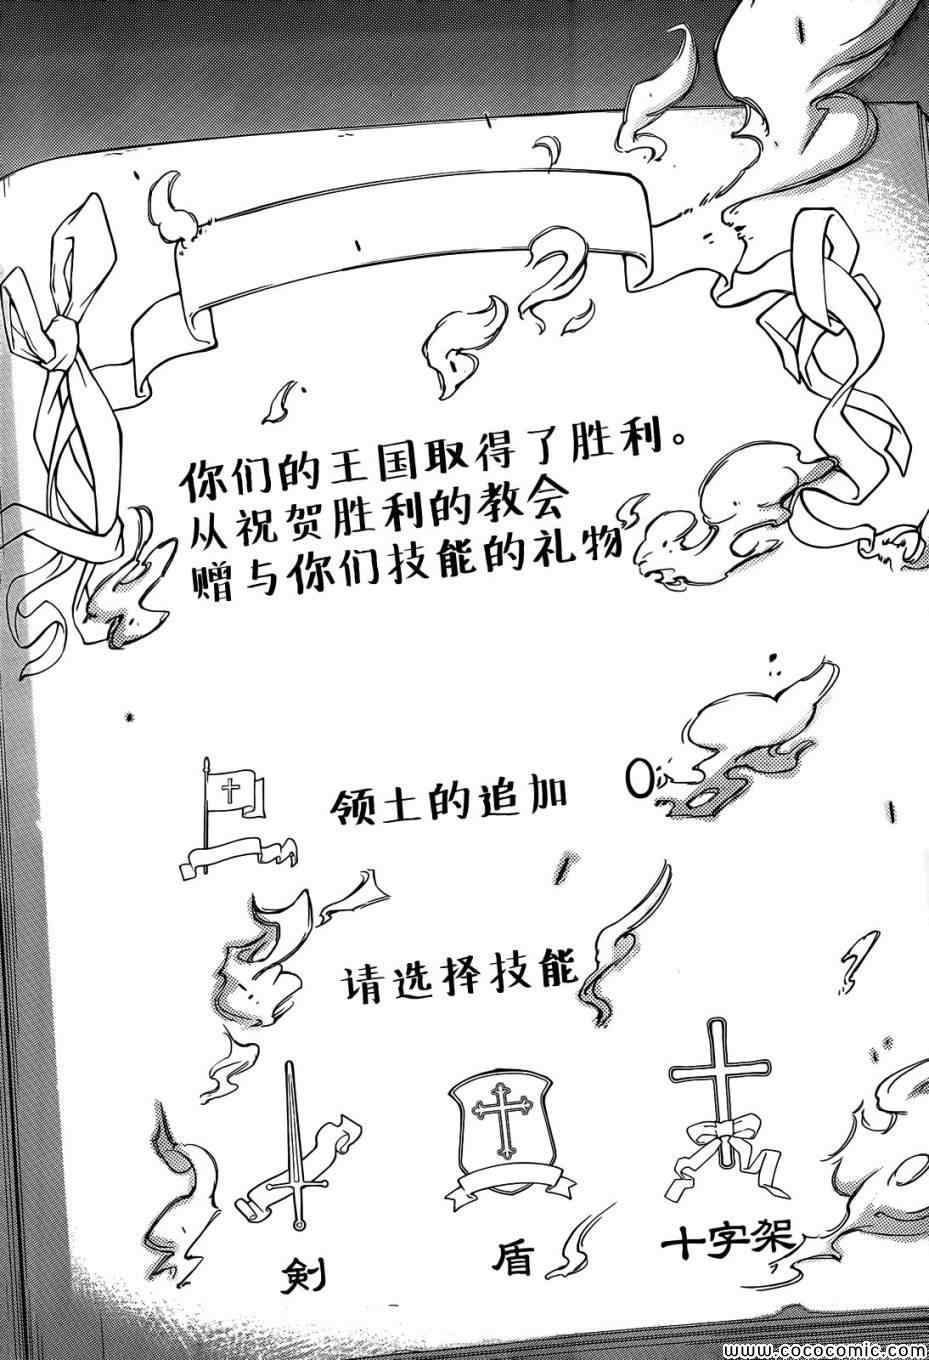 你们的王国取得了胜利。
从祝贺胜利的教会
赠与你们技能的礼物
领土的追加 0
请选择技能
剣 盾 十字架
漫画·新视界
www.cococomic.com